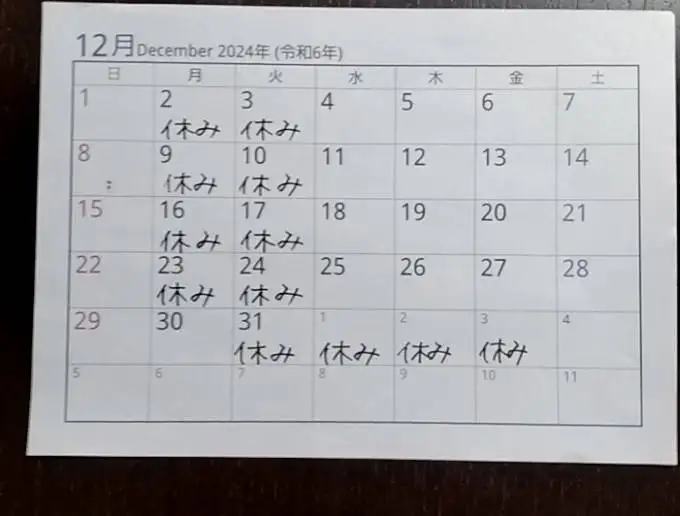 12月 December 2024年 (令和6年)
日 月 火 水 木 金 土
1 2 3 4 5 6 7
休み 休み
8 9 10 11 12 13 14
休み 休み
15 16 17 18 19 20 21
休み 休み
22 23 24 25 26 27 28
休み 休み
29 30 31 1 2 3 4
休み 休み 休み 休み
5 6 7 8 9 10 11